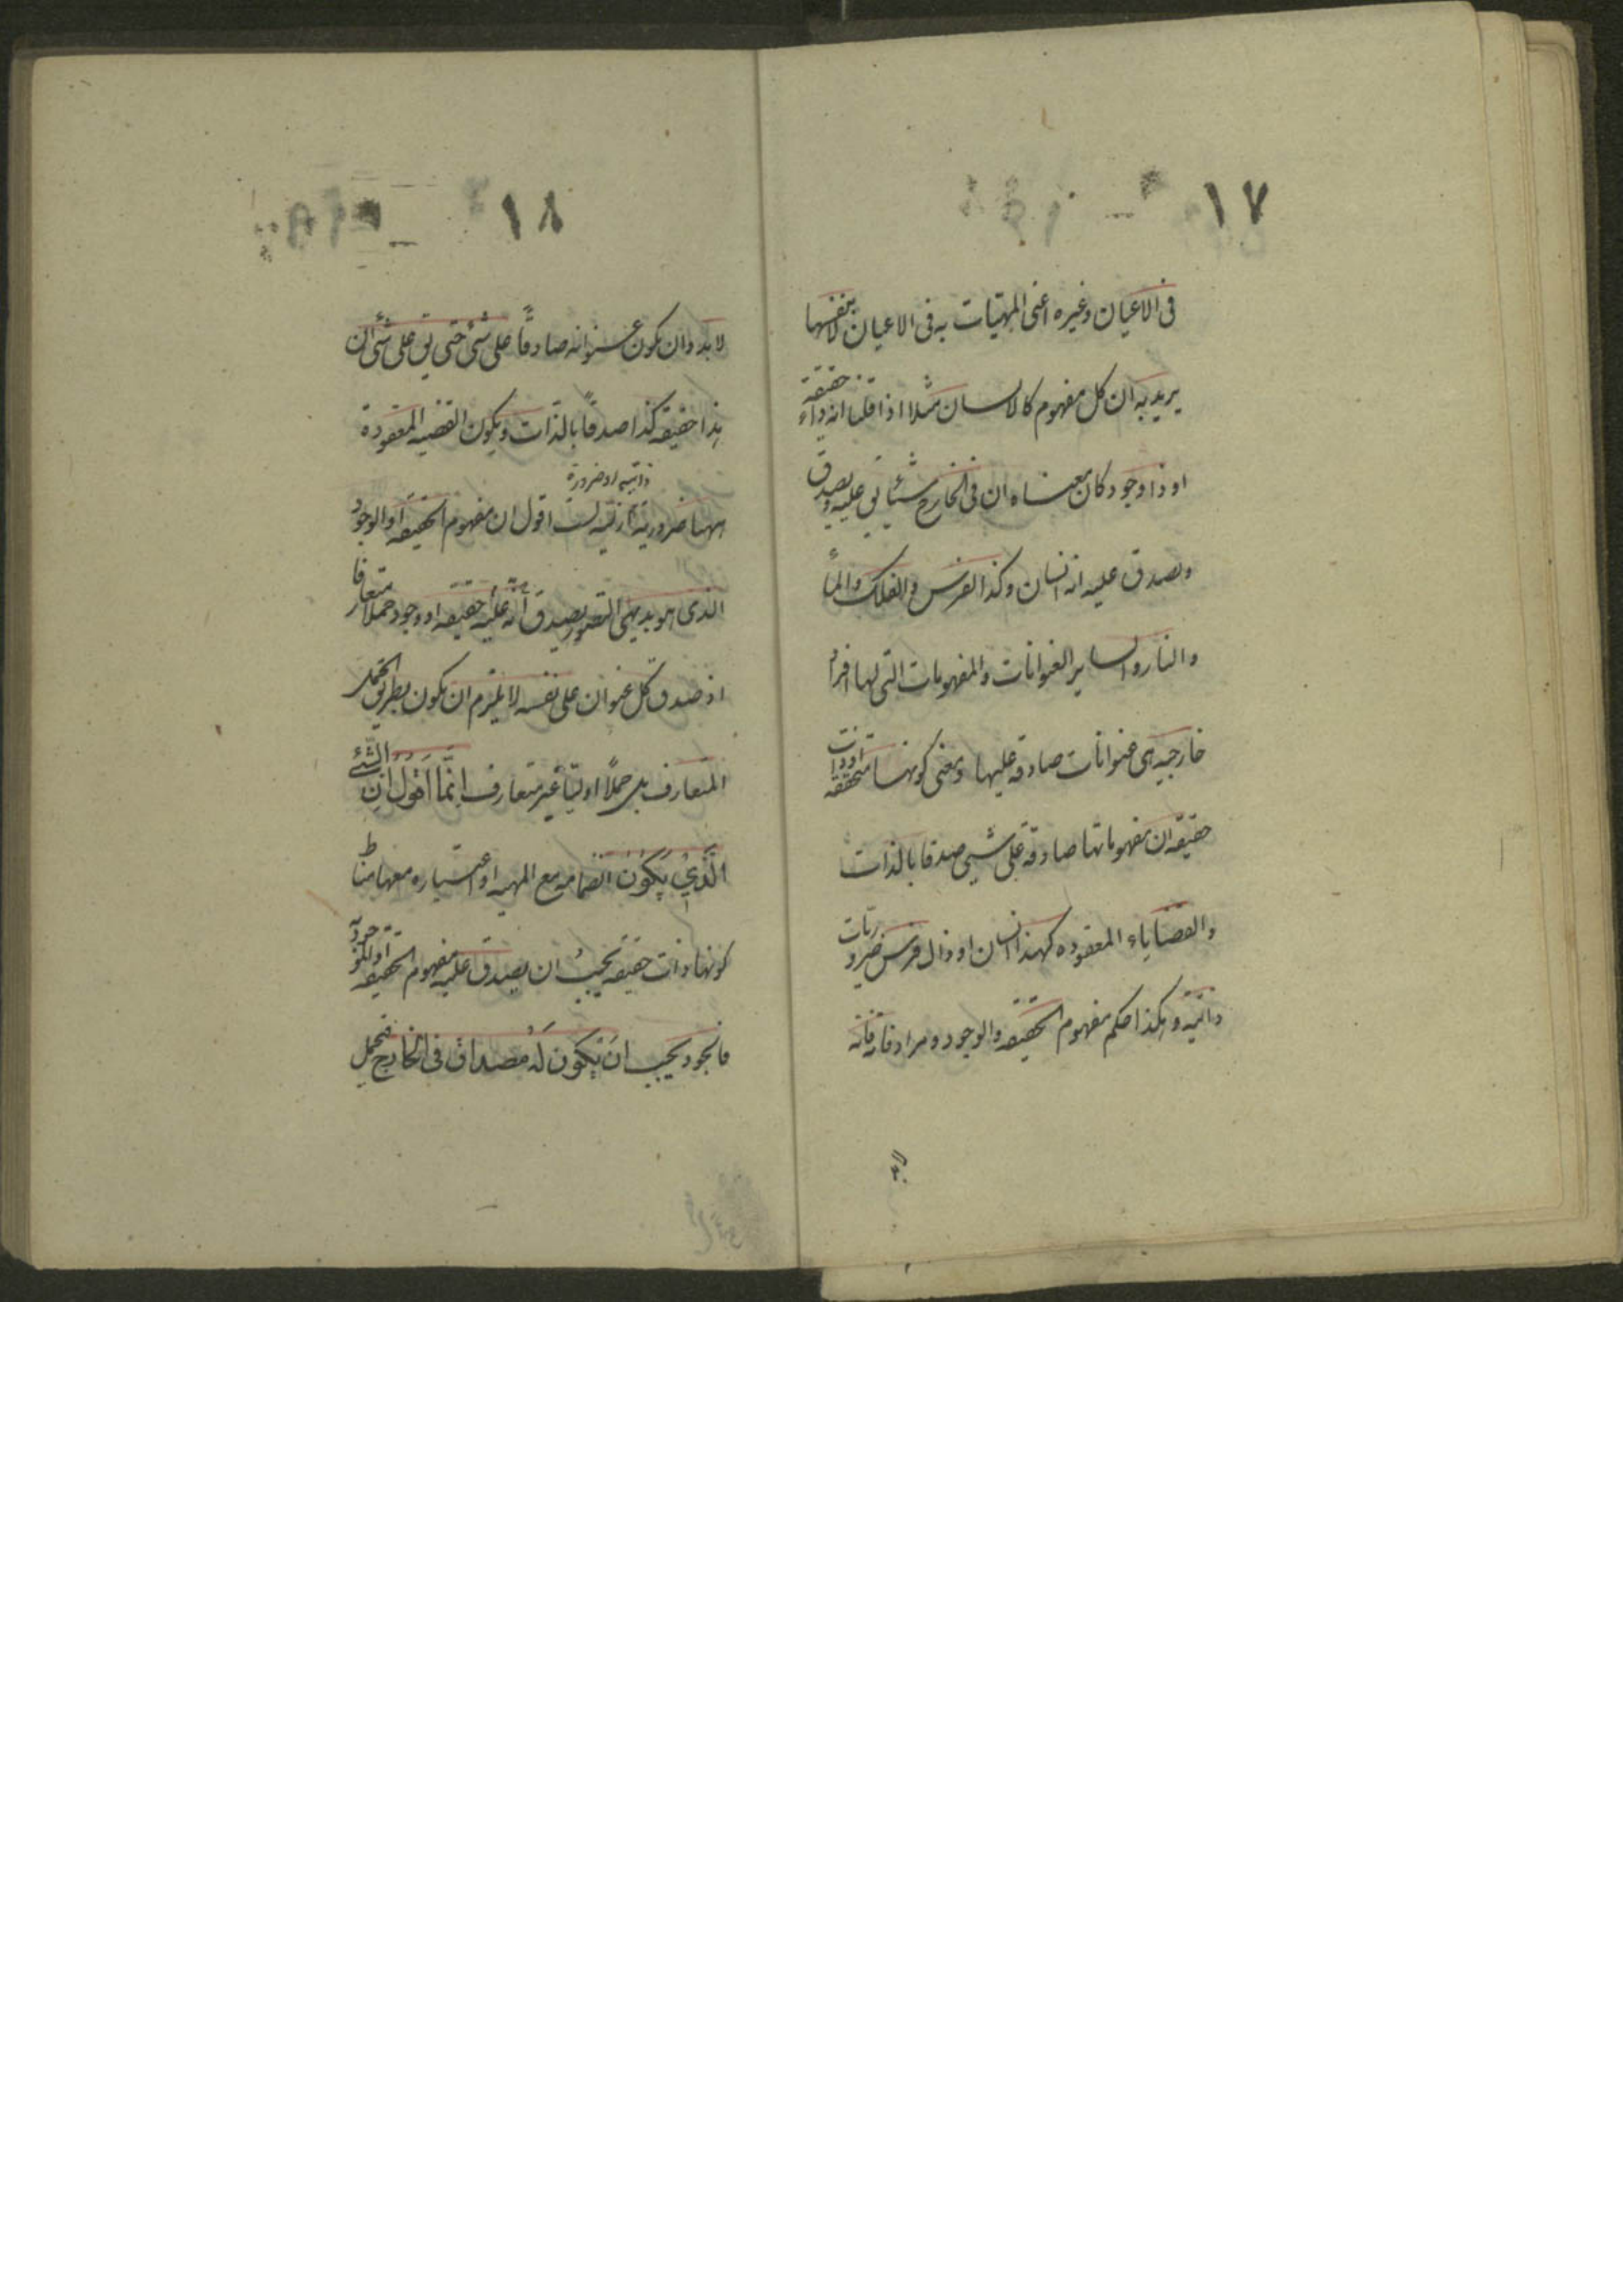 ١٧
فى الاعيان وغيره اعنى المهيات به فى الاعيان لا بنفسها
يريد به ان كل مفهوم كالانسان مثلا اذا قلنا انه ذاء حقيقة
او ذا وجود كان معناه ان فى الخارج شيئا يق عليه ويصدق
ويصدق عليه انه انسان وكذا الفرس والفلك والمأ
والنار والسایر العنوانات والمفهومات التى لها افراد
خارجيه هى عنوانات صادقه عليها ومعنى كونها متحققه او ذات
حقيقة ان مفهوماتها صادقة على شيئ صدقا بالذات
والقضایاء المعقوده كهذا انسان او ذال فرس ضروريات
ذاتيه وهكذا حكم مفهوم الحقيقه والوجود ومرادفاته فانه
لا
١٨
لابد وان يكون عنوانه صادقًا على شئ حتى يق على شئ ان
هذا حقيقه كذا صدقًا بالذات ويكون القضيه المعقودة
ههنا ضرورية ازليه لست اقول ان مفهوم الحقيقه او الوجود
ذاتيه او ضرورة
الذى هو بديهى التصور يصدق عليه أنه حقيقه او وجود حملا متعارفا
اذ صدق كل عنوان على نفسه لا يلزم ان يكون بطريق الحمل
المتعارف بل حملًا اوليًا غير متعارف انّما اقول ان الشئ
الّذي يكون انضمامه مع المهيه او اعتباره معها مناط
كونها ذات حقيقه يجب ان يصدق عليه مفهوم الحقيقه او الموجود
فالوجود يجب ان يكون له مصداق فى الخارج يحمل